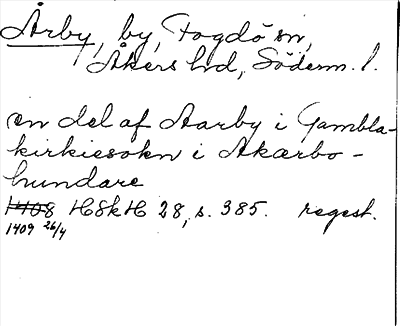 Årby, by, Fogdö sn,
Åkers hd, Söderm. l.
en del af Aarby i Gambla-
kirkiesokn i Akærbo-
hundare
1408 HSkH 28, s. 385. regest.
1409 26/4